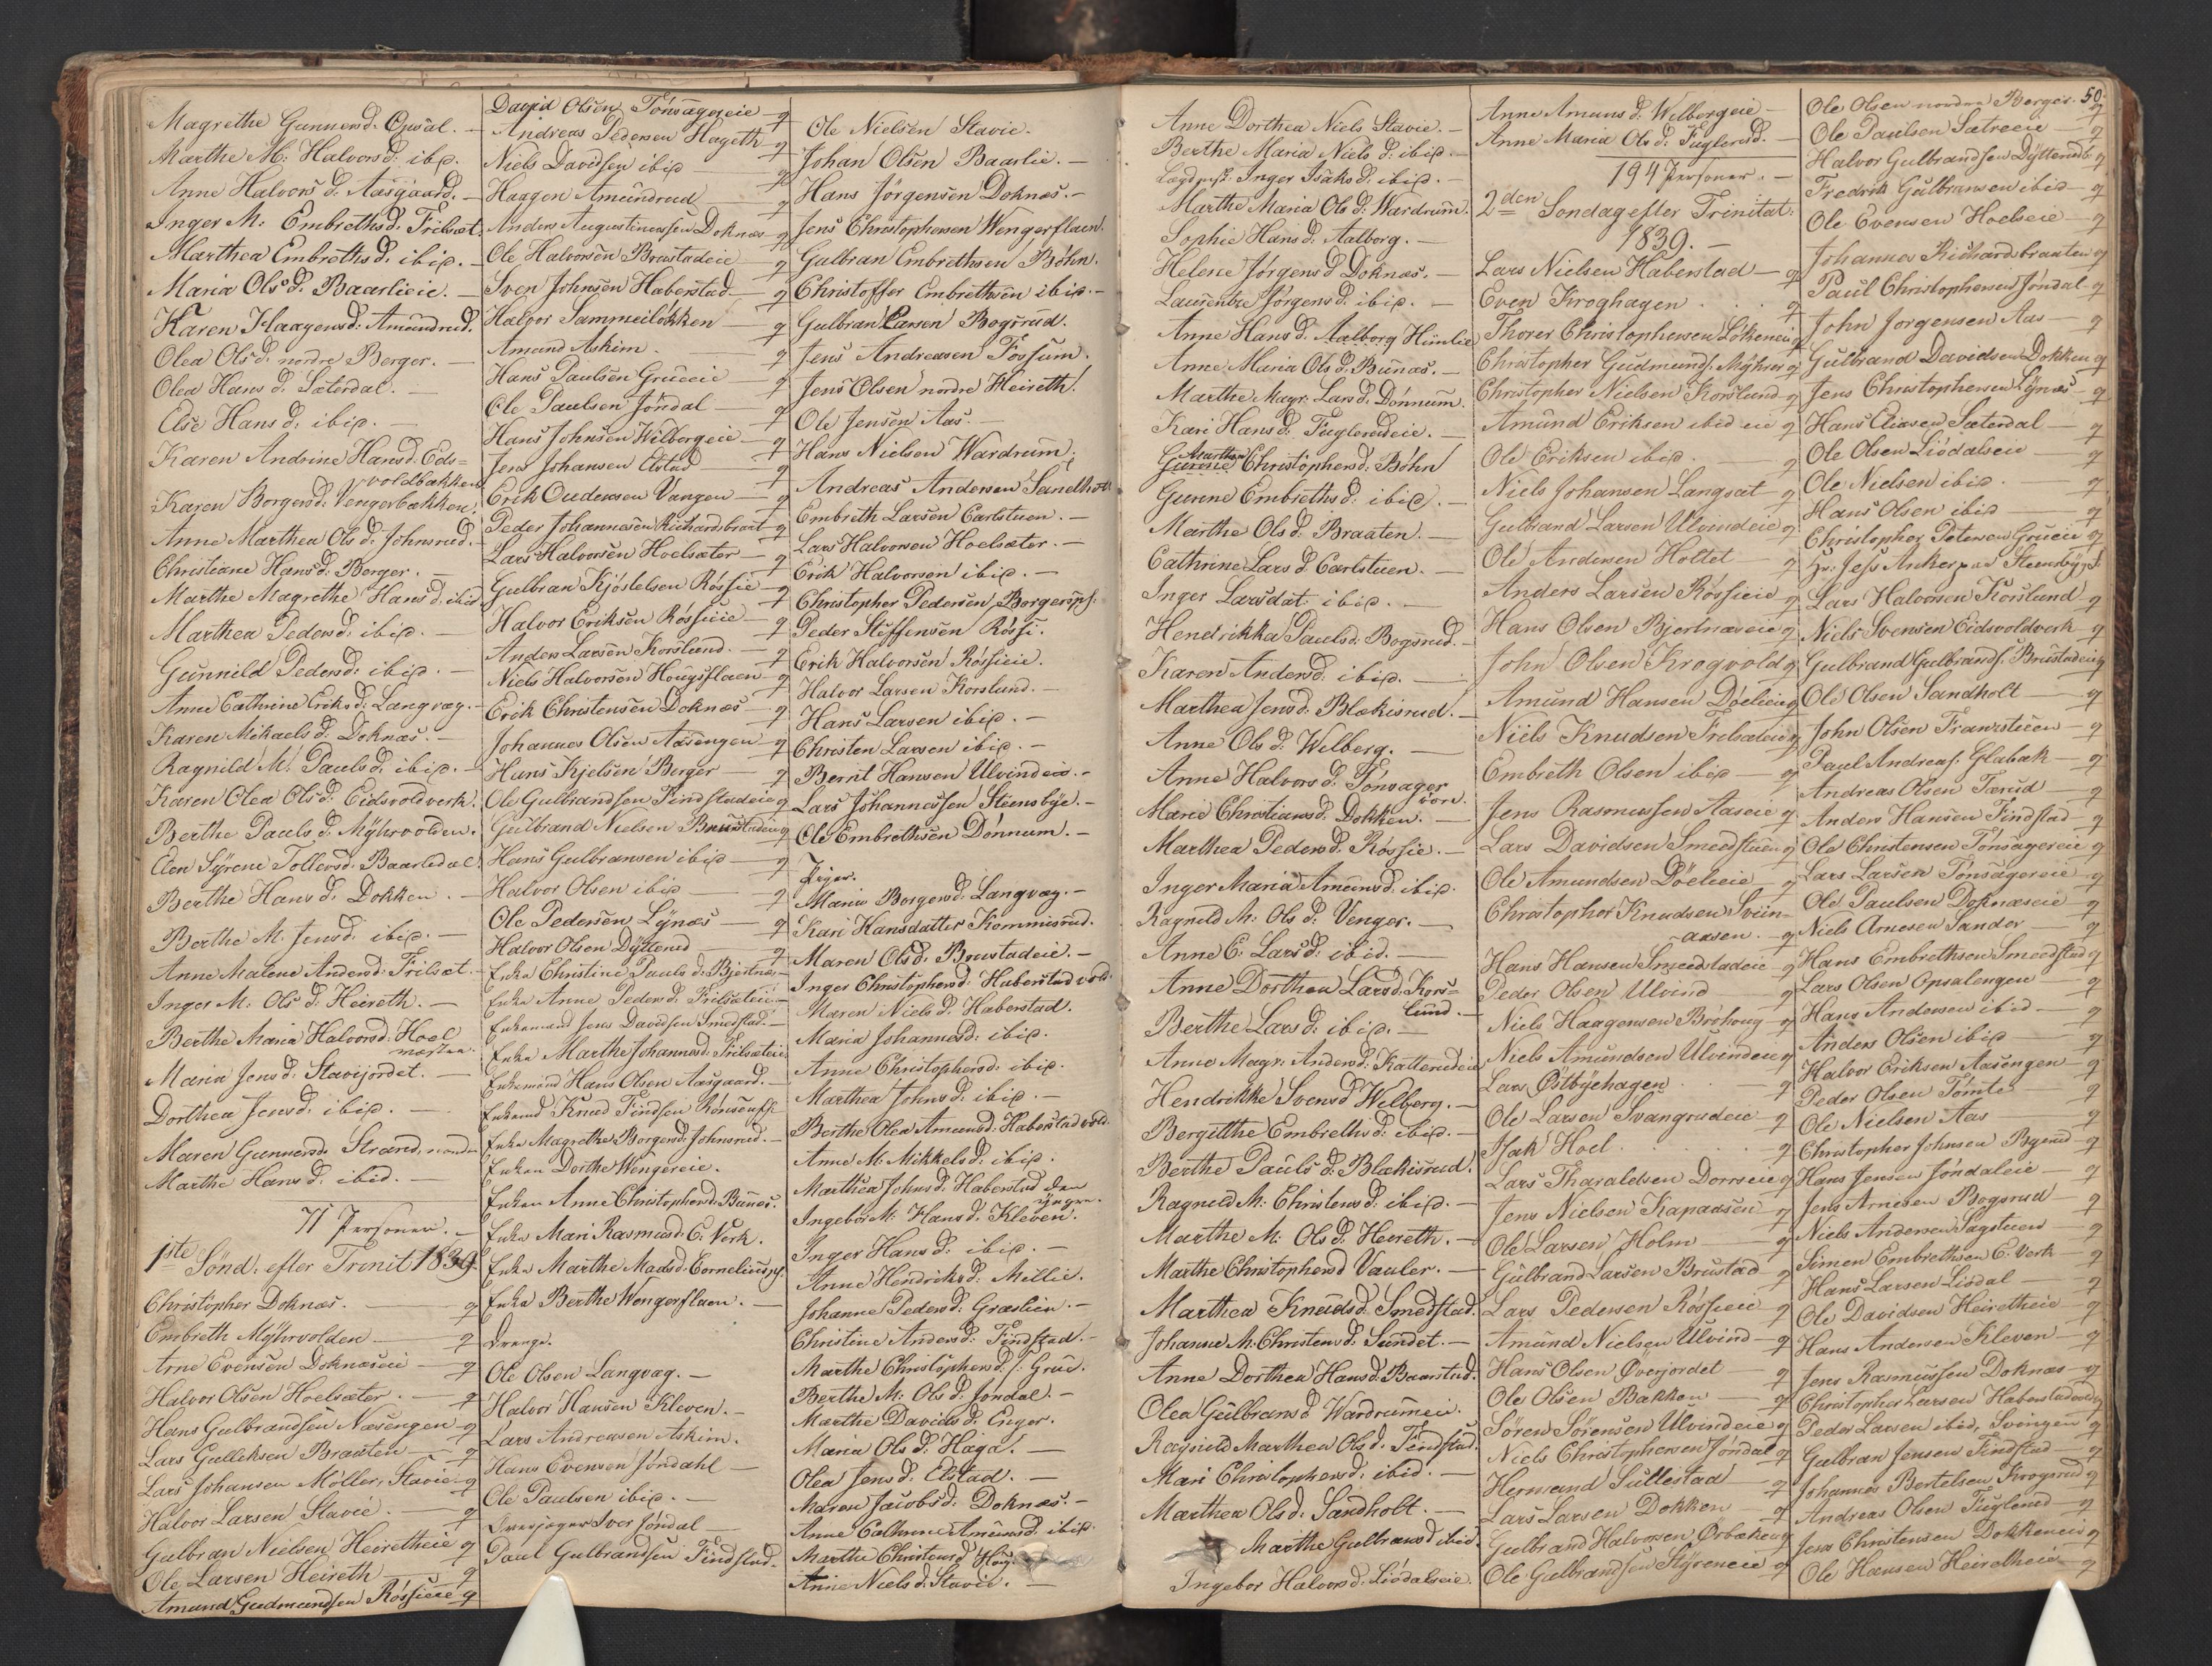 Magrethe Gunnersd. Opsal.
Marthe M: Halvorsd: ibid.
Anne Halvorsd: Aasgaard.
Inger M: Embrethsd: Frilsæt.
Marthea Embrethsd: ibid.
Maria Olsd: Baarlieie.
Karen Haagensd: Amundrud.
Olea Olsd: nordre Berger.
Olea Hansd: Sæterdal.
Else Hansd: ibid.
Karen Andrine Hansd: Eids=
voldbakken
Karen Borgersd: Vengerbakken.
Anne Marthea Olsd: Johnsrud.
Christiane Hansd: Berger.
Marthe Magrethe Hansd: ibid
Marthea Pedersd: ibid.
Gunnild Pedersd: ibid.
Anne Cathrine Eriksd: Langvag.
Karen Mikaelsd: Doknæs.
Ragnild M: Paulsd: ibid.
Karen Olea Olsd: Eidsvoldverk.
Berthe Paulsd: Myhrvolden.
Elen Syrene Tollersd: Baarledal.
Berthe Hansd: Dokken.
Berthe M. Jensd: ibid.
Anne Malene Andersd: Frilsæt.
Inger M. Olsd: Heireth.
Berthe Maria Halvorsd: Hoel
næstua.
Maria Jensd: Stavijordet.
Dorthea Jensd: ibid.
Maren Gunnersd: Strand, nordre
Marthe Hansd: ibid.
71 Personer.
1ste Sönd. efter Trinit 1839
Christopher Doknæs. g
Embreth Myhrvolden g
Arne Evensen Doknæseie g
Halvor Olsen Hoelsæter. g
Hans Gulbrandsen Næsengen g
Lars Gulleksen Braaten g
Lars Johansen Möller, Stavie g
Halvor Larsen Stavie. g
Gulbran Nielsen Heiretheie g
Ole Larsen Heireth g
Amund Gudmundsen Rössieie g
David Olsen Tönsagereie g
Andreas Pedersen Hageth g
Niels Davidsen ibid g
Haagen Amundrud g
Anders Augustinussen Doknæs g
Ole Halvorsen Brustadeie g
Sven Johnsen Haberstad g
Halvor Sammeilökken g
Amund Askim. g
Hans Paulsen Grueeie g
Ole Paulsen Jöndal g
Hans Johnsen Wilbergeie g
Jens Johansen Elstad g
Erik Oudensen Vangen g
Peder Johannesen Richardsbraat g
Lars Halvorsen Hoelsæter g
Gulbran Kjöstelsen Rössie g
Halvor Eriksen Rössieie g
Anders Larsen Korslund. g
Niels Halvorsen Hougsflaen g
Erik Christensen Doknæs g
Johannes Olsen Aasengen g
Hans Kjelsen Berger g
Ole Gulbrandsen Findstadeie g
Gulbrand Nielsen Brustadeie g
Hans Gulbransen ibid g
Halvor Olsen ibid g
Ole Pedersen Lynæs g
Halvor Olsen Dytterud g
Enke Christine Paulsd: Bjertnæs
Enke Anne Pedersd: Frilsæteie
Enkemand Jens Davidsen Smedstad.
Enke Marthe Johannesd: Frilsæteie
Enkemand Hans Olsen Aasgaard.
Enkemd Knud Findsen
Enke Magrethe Borgersd: Johnsrud.
Enken Dorthe Wengereie.
Enken Anne Christophersd: Bunæs.
Enke Mari Rasmusd: E: Verk.
Enke Marthe Madsd: Corneliuspl.
Enke Berthe Wengerflaen.
Drenge.
Ole Olsen Langvag.
Halvor Hansen Kleven.
Lars Andreasen Askim.
Hans Evensen Jöndahl
Ole Paulsen ibid.
Iver Jöndal
Paul Gulbrandsen Findstad.
Ole Nielsen Stavie.
Johan Olsen Baarlie.
Hans Jörgensen Doknæs.
Jens Christophersen Wengerflaen.
Gulbran Embrethsen Böhn.
Christoffer Embrethsen ibid.
Gulbran Larsen Bogsrud.
Jens Andreasen Fossum.
Jens Olsen nordre Heireth.
Ole Jensen Aas.
Hans Nielsen Wardrum.
Andreas Andersen Sandholt
Embreth Larsen Carlstuen.
Lars Halvorsen Hoelsæter.
Erik Halvorsen ibid.
Christopher Pedersen Borgerspl.
Peder Steffensen Rössi.
Erik Halvorsen Rössieie.
Halvor Larsen Korslund.
Hans Larsen ibid.
Christen Larsen ibid.
Bernt Hansen Ulvindeie.
Lars Johannessen Steensbye.
Ole Embrethsen Dönnum.
Piger.
Maria Borgersd: Langvag.
Kari Hansdatter Kommisrud.
Maren Olsd: Brustadeie.
Inger Christophersd: Haberstadvold.
Maren Nielsd: Haberstad.
Maria Johannesd: ibid.
Anne Christophersd: ibid.
Marthea Johnsd: ibid.
Berthe Olea Amundsd: Haberstadvold.
Anne M. Mikkelsd: ibid.
Marthea Johnsd: Haberstad den
yngre.
Ingebor M: Hansd: Kleven.
Inger Hansd: ibid.
Anne Hendriksd: Millie.
Johanne Pedersd: Græslien.
Christine Andersd: Findstad.
Marthe Christophersd: Grue.
Berthe M: Olsd: Jöndal.
Marthe Davidsd: Enger.
Maria Olsd: Haga.
Olea Jensd: Elstad.
Maren Jacobsd: Doknæs.
Anne Cathrine Amundsd: ibid.
Marthe Christensd:
Anne Nielsd: Stavie.
Anne Dorthea Niels Stavie.
Berthe Maria Nielsd: ibid.
Inger Isaksd: ibid.
Marthe Maria Olsd: Wardrum.
Sophie Hansd: Aalborg.
Helene Jörgensd: Doknæs.
Laurentze Jörgensd: ibid.
Anne Hansd: Aalborg Humlie
Anne Maria Olsd: Bunæs.
Marthe Magr: Larsd: Dönnum.
Kari Hansd: Fuglerudeie.
Marthea
Christophersd: Böhn
Gunne Embrethsd: ibid.
Marthe Olsd: Braaten.
Cathrine Larsd: Carlstuen.
Inger Larsdat: ibid.
Hendrikka Paulsd: Bogsrud.
Karen Andersd: ibid.
Marthea Jensd: Blakisrud.
Anne Olsd: Welberg.
Anne Halvorsd: Tönsager
vore.
Maria Christiansd: Dokken.
Marthea Pedersd: Rössie.
Inger Maria Amunsd: ibid.
Ragnild M: Olsd: Venger.
Anne E: Larsd: ibid.
Anne Dorthea Larsd: Kors=
lund.
Berthe Larsd: ibid.
Anne Magr: Andersd: Katterudeie
Hendrikke Svensd Welberg.
Bergitthe Embrethsd: ibid.
Berthe Paulsd: Blakisrud.
Ragnild M: Christensd: ibid.
Marthe M: Olsd: Heireth.
Marthe Christophersd Vauler.
Marthea Knudsd: Smedstad.
Johanne M. Christensd: Sundet.
Anne Dorthea Hansd: Baarstad.
Olea Gulbransd Wardrumeie.
Ragnild Marthea Olsd: Findstad.
Mari Christophersd: ibid.
Marthea Olsd: Sandholt.
Marthe Gulbransd ibid.
Ingebor Halvorsd: Liödalseie.
Anne Amunsd: Wilbergeie
Anne Maria Olsd: Fuglerud.
194 Personer.
2den Söndag efter Trinitat:
1839.
Lars Nielsen Haberstad g
Even Kroghagen g
Thorer Christophersen Lökeneie g
Christopher Gudmunds. Myhrer g
Christopher Nielsen Korslund g
Amund Eriksen ibid eie g
Ole Eriksen ibid. g
Niels Johansen Langsæt g
Gulbrand Larsen Ulvindeie g
Ole Andersen Holtet g
Anders Larsen Rössieie g
Hans Olsen Bjertnæseie g
John Olsen Krogvold g
Amund Hansen Döelieie g
Niels Knudsen Frilsæteie g
Embreth Olsen ibid g
Jens Rasmussen Aaseie g
Lars Davidsen Smedstuen g
Ole Amundsen Döelieie g
Christopher Knudsen Sviin-
aasen. g
Hans Hansen Smedstadeie g
Peder Olsen Ulvind g
Niels Haagensen Bröhoug g
Niels Amundsen Ulvindeie g
Lars Østbyehagen g
Ole Larsen Svangrudeie g
Isak Hoel g
Lars Tharaldsen Dorreeie g
Jens Nielsen Kapaasen g
Ole Larsen Holm g
Gulbrand Larsen Brustad g
Lars Pedersen Rössieie g
Amund Nielsen Ulvind g
Hans Olsen Øverjordet g
Ole Olsen Bakken g
Sören Sörensen Ulvindeie g
Niels Christophersen Jöndal g
Hermand Sullestad g
Lars Larsen Dokken g
Gulbrand Halvorsen Ørbækeie g
Ole Gulbrandsen Styreneie g
50.
Ole Olsen nordre Berger. g
Ole Paulsen Sætreeie g
Halvor Gulbrandsen Dytterudb. g
Fredrik Gulbransen ibid g
Ole Evensen Hoelseie g
Johannes Richardsbraaten g
Paul Christophersen Jöndal g
John Jörgensen Aas g
Gulbrand Davidsen Dokken g
Jens Christophersen Lynæs g
Hans Eliasen Sæterdal g
Ole Olsen Liödalseie g
Ole Nielsen ibid. g
Hans Olsen ibid g
Christopher Petersen Grueeie g
Hr: Jess Anker paa Steensbye g
Lars Halvorsen Korslund g
Niels Svensen Eidsvoldverk g
Gulbrand Gulbrands. Brustadeie g
Ole Olsen Sandholt g
John Olsen g
Paul Andreas. Glabak g
Andreas Olsen Tærud g
Anders Hansen Findstad g
Ole Christensen Tönsagereie g
Lars Larsen Tönsagereie g
Ole Paulsen Doknæseie g
Niels Arnesen Sander g
Hans Embrethsen Smedstad g
Lars Olsen Opsalengen g
Hans Andersen ibid g
Anders Olsen ibid g
Halvor Eriksen Aasengen g
Peder Olsen Tömte g
Ole Nielsen Aas g
Christopher Johnsen Rgerud g
Hans Jensen Jöndaleie g
Jens Arnesen Bogsrud g
Niels Andersen Sagstuen g
Simen Embrethsen E. Verk g
Hans Larsen Liödal g
Ole Davidsen Heiretheie g
Hans Andersen Kleven g
Jens Rasmussen Doknæs g
Christopher Larsen Haberstadvold g
Peder Larsen ibid, Svingen g
Gulbran Jensen Findstad g
Johannes Bertelsen Krogsrud g
Andreas Olsen Fuglerud g
Jens Christensen Dokkeneie g
Ole Hansen Heiretheie g